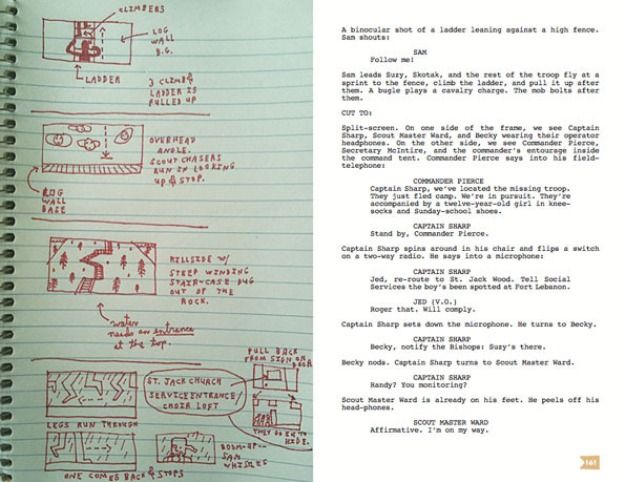 CLIMBERS
LOG
WALL
B.G.
LADDER
3 CLIMB &
LADDER IS
PULLED UP
OVERHEAD
ANGLE.
SCOUT CHASERS
RUN IN LOOKING
UP & STOP.
LOG
WALL
BASE
HILLSIDE W/
STEEP WINDING
STAIR-CASE DUG
OUT OF THE
ROCK.
needs an entrance
at the top.
PULL BACK
FROM SIGN ON
DOOR
ST. JACK CHURCH
SERVICE ENTRANCE/
CHOIR LOFT
THEY GO IN TO
HIDE.
LEGS RUN THROUGH
BOOM-UP--
SAM
WHISTLES
ONE COMES BACK & STOPS
A binocular shot of a ladder leaning against a high fence.
Sam shouts:
SAM
Follow me!
Sam leads Suzy, Skotak, and the rest of the troop fly at a
sprint to the fence, climb the ladder, and pull it up after
them. A bugle plays a cavalry charge. The mob bolts after
them.
CUT TO:
Split-screen. On one side of the frame, we see Captain
Sharp, Scout Master Ward, and Becky wearing their operator
headphones. On the other side, we see Commander Pierce,
Secretary McIntire, and the commander's entourage inside
the command tent. Commander Pierce says into his field-
telephone:
COMMANDER PIERCE
Captain Sharp, we've located the missing troop.
They just fled camp. We're in pursuit. They're
accompanied by a twelve-year-old girl in knee-
socks and Sunday-school shoes.
CAPTAIN SHARP
Stand by, Commander Pierce.
Captain Sharp spins around in his chair and flips a switch
on a two-way radio. He says into a microphone:
CAPTAIN SHARP
Jed, re-route to St. Jack Wood. Tell Social
Services the boy's been spotted at Fort Lebanon.
JED (V.O.)
Roger that. Will comply.
Captain Sharp sets down the microphone. He turns to Becky.
CAPTAIN SHARP
Becky, notify the Bishops: Suzy's there.
Becky nods. Captain Sharp turns to Scout Master Ward.
CAPTAIN SHARP
Randy? You monitoring?
Scout Master Ward is already on his feet. He peels off his
head-phones.
SCOUT MASTER WARD
Affirmative. I'm on my way.
161